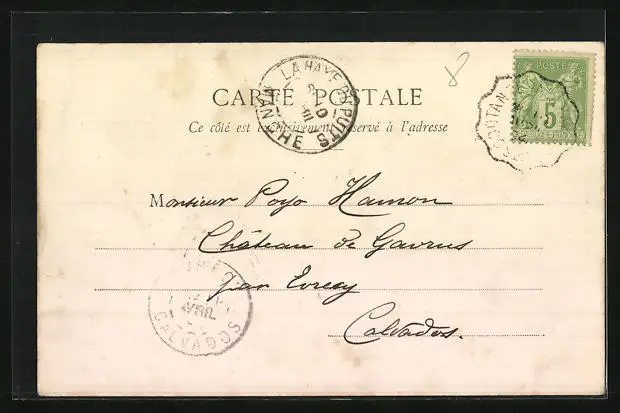 LA HAYE DU PUITS
MANCHE
CARTE POSTALE
Ce côté est exclusivement réservé à l'adresse
POSTE
5
8
Monsieur Poyo Hamon
Château de Gavrus
par Evrecy
Calvados.
AVRIL
CALVADOS